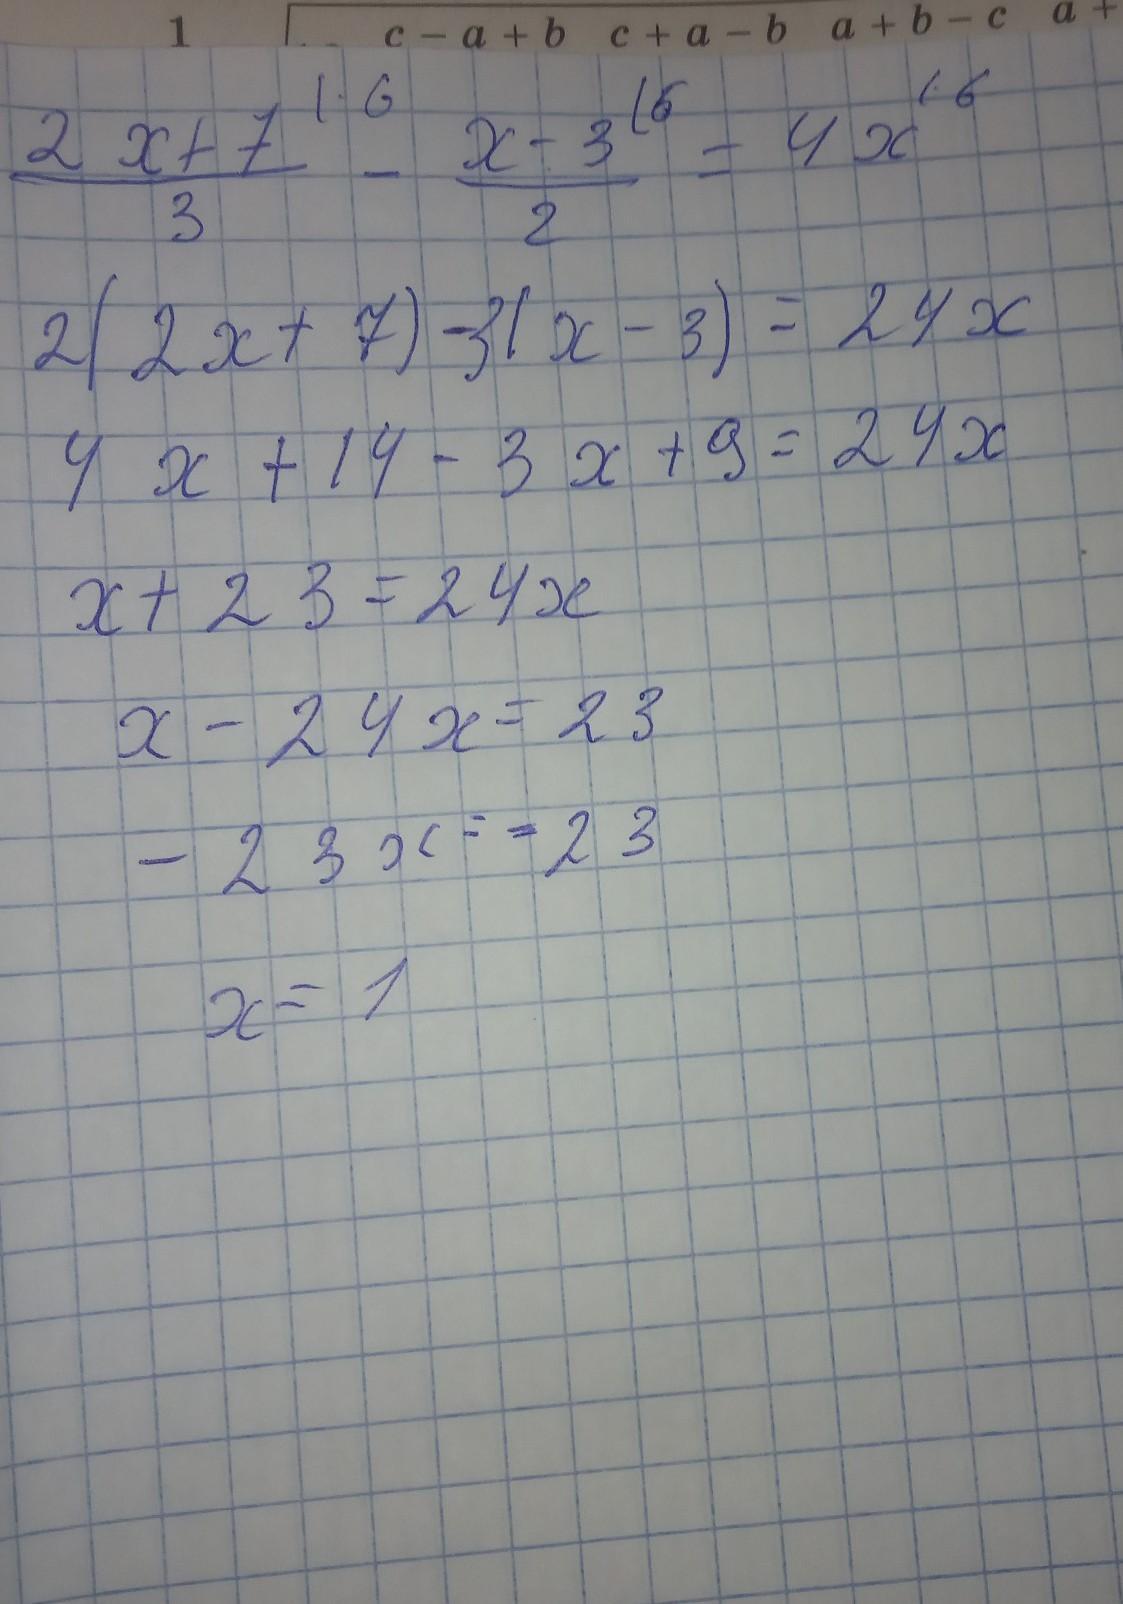 1 c – a + b c + a – b a + b – c a +
(2x+7)/3 |·6 - (x-3)/2 |6 = 4x |·6
2(2x+7)-3(x-3)=24x
4x+14-3x+9=24x
x+23=24x
x-24x=23
-23x=-23
x=1